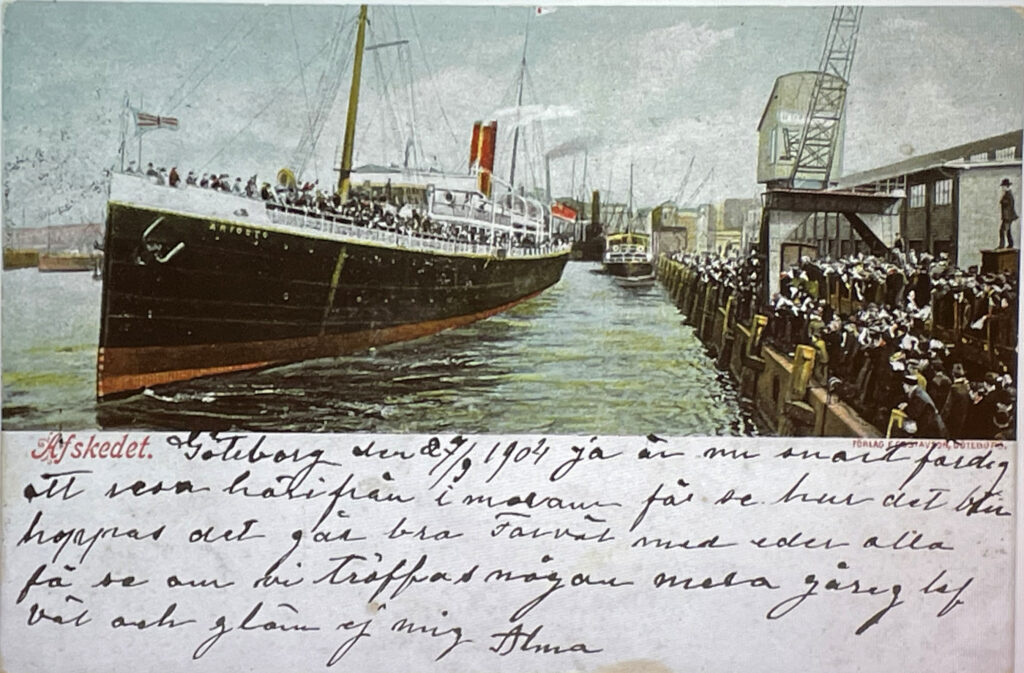 ARIOSTO
Afskedet.
FÖRLAG E GUSTAVSON, GÖTEBORG.
Göteborg den 27/9 1904 ja är nu snart färdig
att resa härifrån i får se hur det blir
hoppas det går bra Farväl med eder alla
få se om vi träffas någon mera lef
väl och glöm ej mig Alma